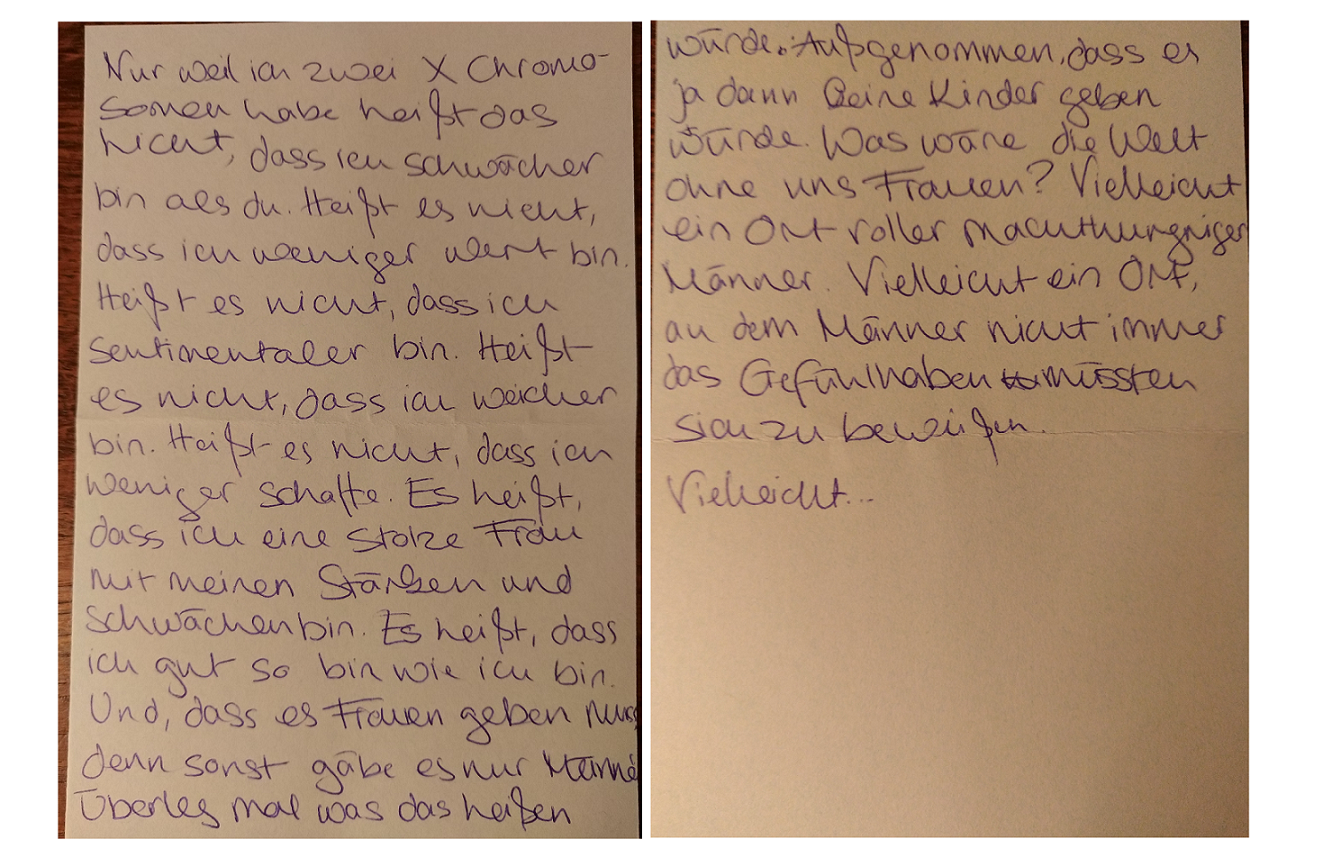 Nur weil ich zwei X Chromo-
somen habe heißt das
nicht, dass ich schwächer
bin als du. Heißt es nicht,
dass ich weniger wert bin.
Heißt es nicht, dass ich
sentimentaler bin. Heißt
es nicht, dass ich weicher
bin. Heißt es nicht, dass ich
weniger schaffe. Es heißt,
dass ich eine stolze Frau
mit meinen Stärken und
schwächen bin. Es heißt, dass
ich gut so bin wie ich bin.
Und, dass es Frauen geben muss,
denn sonst gäbe es nur Männer
Überleg mal was das heißen
würde. Aufgenommen, dass es
ja dann keine Kinder geben
würde. Was wäre die Welt
ohne uns Frauen? Vielleicht
ein Ort voller machthungriger
Männer. Vielleicht ein Ort,
an dem Männer nicht immer
das Gefühl haben müssten
sich zu beweißen.
Vielleicht...